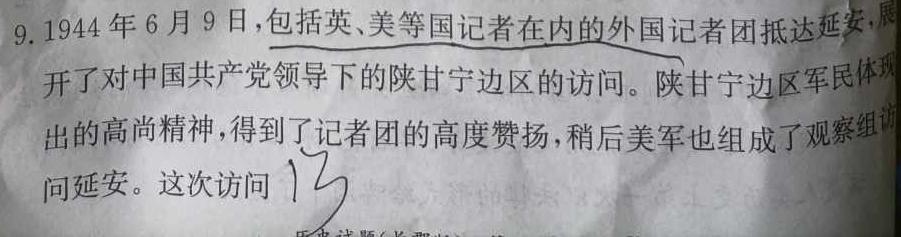 9. 1944年6月9日,包括英、美等国记者在内的外国记者团抵达延安,展
开了对中国共产党领导下的陕甘宁边区的访问。陕甘宁边区军民体现
出的高尚精神,得到了记者团的高度赞扬,稍后美军也组成了观察组访
问延安。这次访问